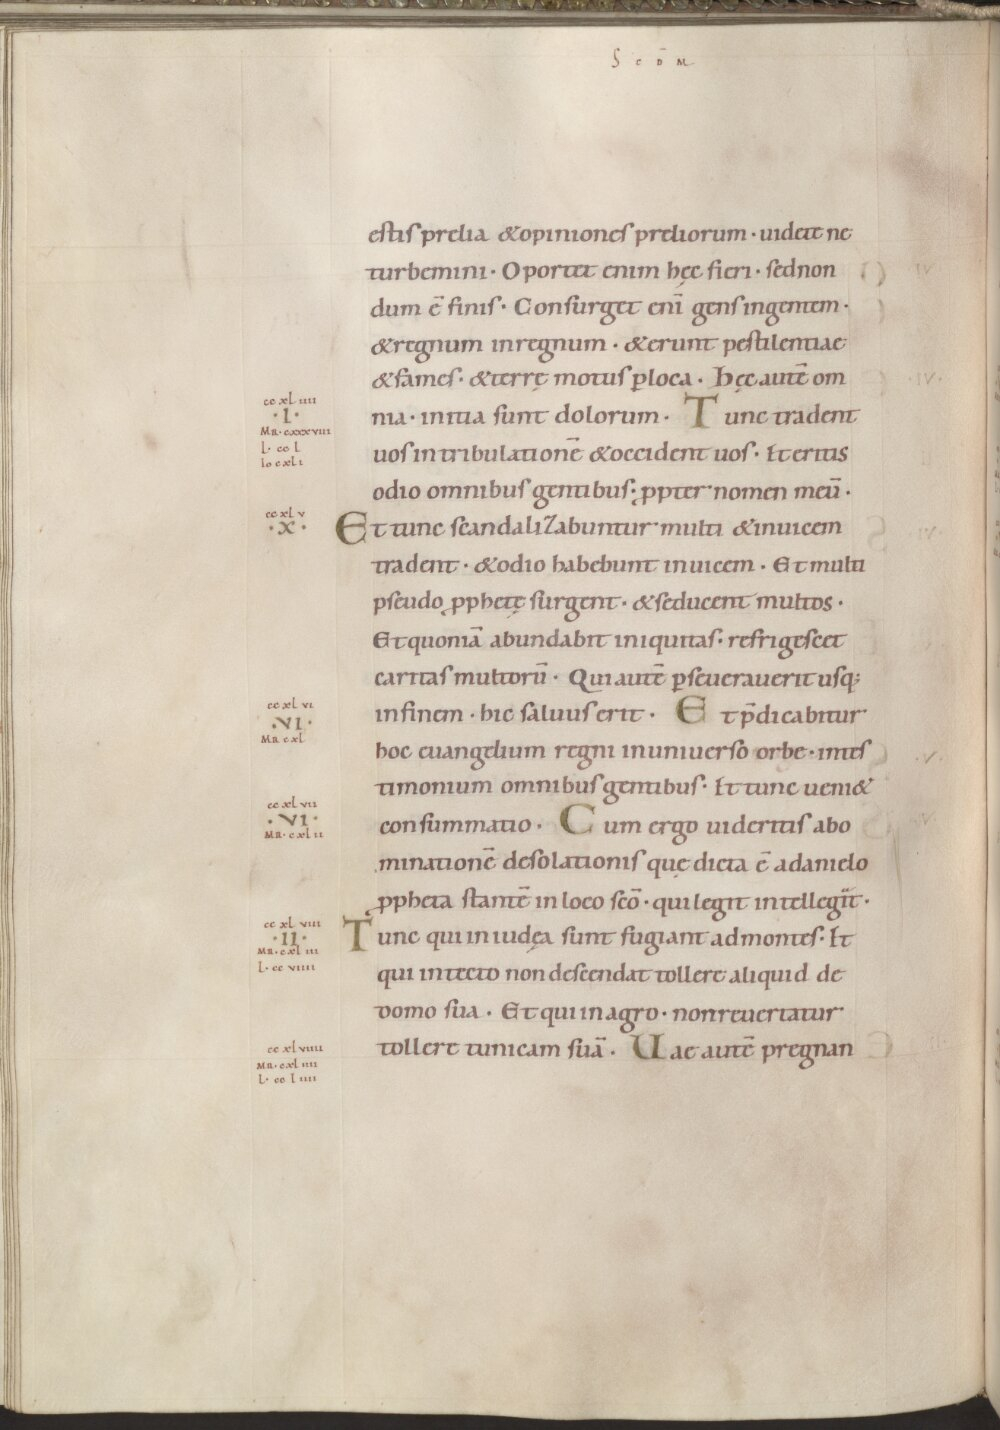 S c d̄ M
estis prelia &opiniones preliorum · uidete ne
turbemini · Oportet enim hęc fieri · sed non
dum ē finis · Consurget enī gens in gentem ·
&regnum in regnum · &erunt pestilentiae
&fames · &terrę motus ꝑ loca · hęc autē om
cc xl iiii
· I ·
MR · cxxxviii
L · cc l
Io cxl i
nia · initia sunt dolorum · Tunc tradent
uos in tribulationē &occident uos · Et eritis
odio omnibus gentibus; ꝓpter nomen meū ·
cc xl v
· X ·
Et tunc scandalizabuntur multi &inuicem
tradent · &odio habebunt inuicem · Et multi
pseudo ꝓphetę surgent · &seducent multos ·
Et quoniā abundabit iniquitas · refrigescet
caritas multorū · Qui autē ꝑseuerauerit usq;
cc xl vi
· VI ·
MR cxl
in finem · hic saluus erit · Et p̄dicabitur
hoc euangelium regni in uniuerso orbe · in tes
timonium omnibus gentibus · Et tunc ueni&
cc xl vii
· VI ·
MR · cxl ii
consummatio · Cum ergo uideritis abo
minationē desolationis quę dicta ē a danielo
ꝓpheta stantē in loco scō · qui legit intellegit ·
cc xl viii
· II ·
MR · cxl iii
L · cc viiii
Tunc qui in iudęa sunt fugiant ad montes · Et
qui in tecto non descendat tollere aliquid de
domo sua · Et qui in agro · non reuertatur
cc xl viiii
MR · cxl iiii
L · cc l iiii
tollere tunicam suā · Uae autē pregnan